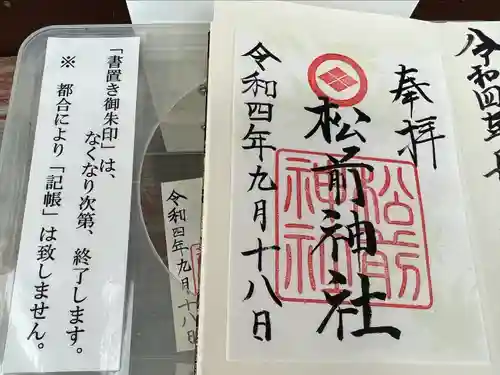 令和四年十
奉拝
松前神社
松前神社
令和四年九月十八日
令和四年九月十八日
「書置き御朱印」は、
なくなり次第、終了します。
※ 都合により「記帳」は致しません。